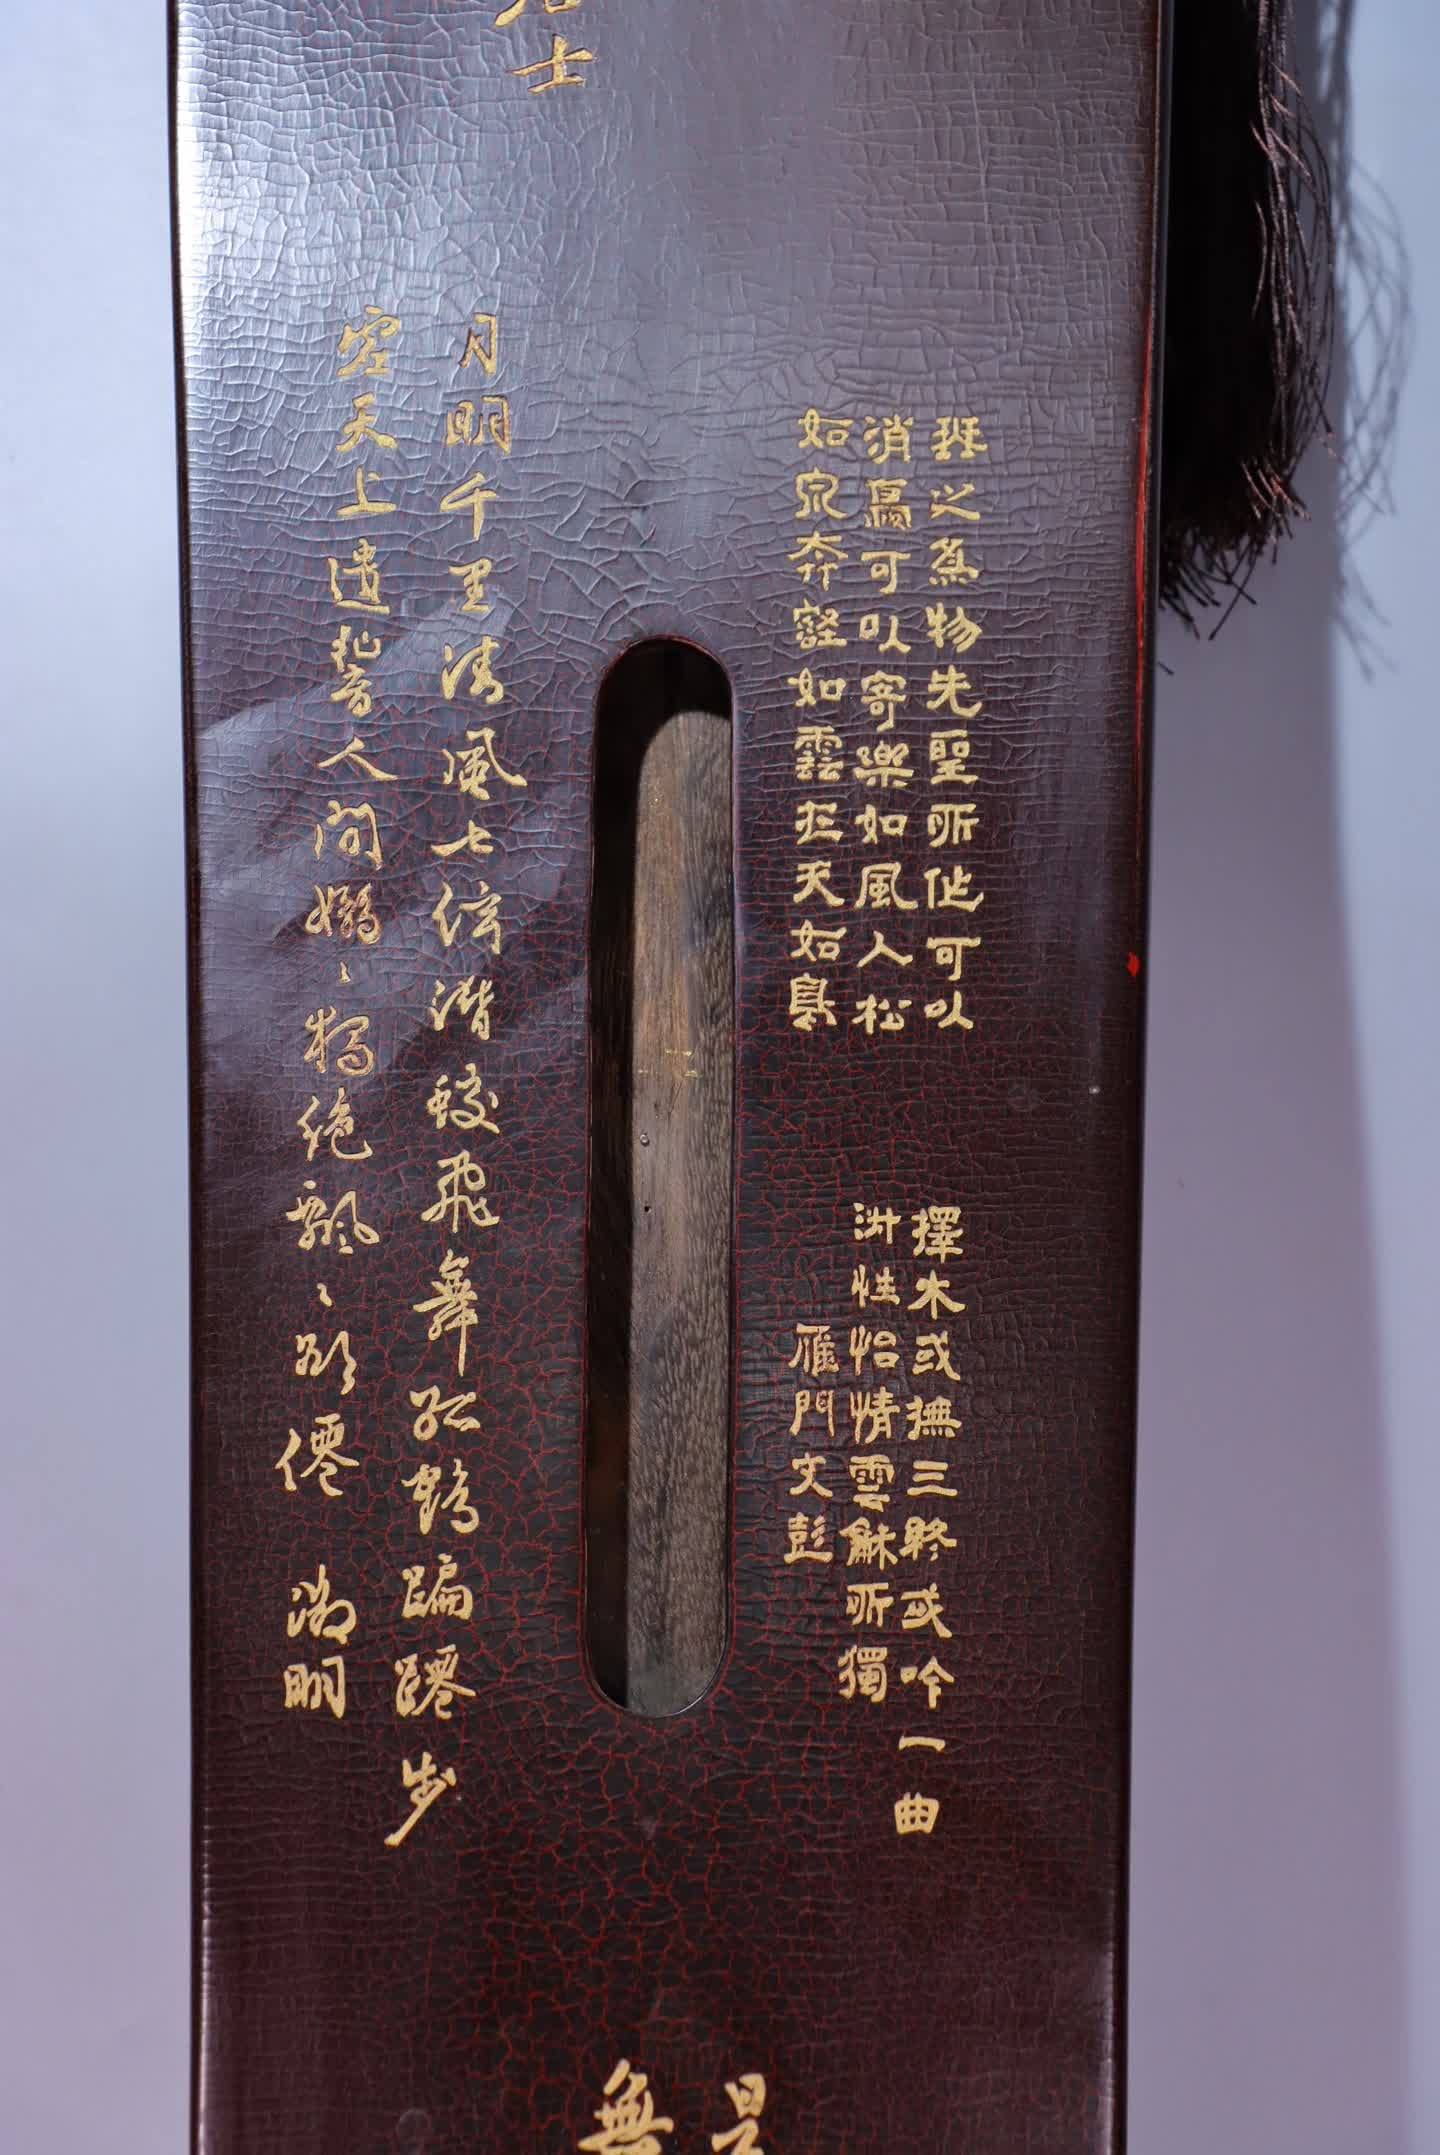 居士
琴之為物先聖所作可以
消鬲可以寄樂如風入松
如泉奔壑如雲在天如鳥
擇木或撫三終或吟一曲
洲性怡情雲龢所獨
雁門文彭
月明千里清風七弦潛蛟飛舞孤鶴蹁躚步
虛天上遺響人間嫋〻獨絕飄〻欲僊
無